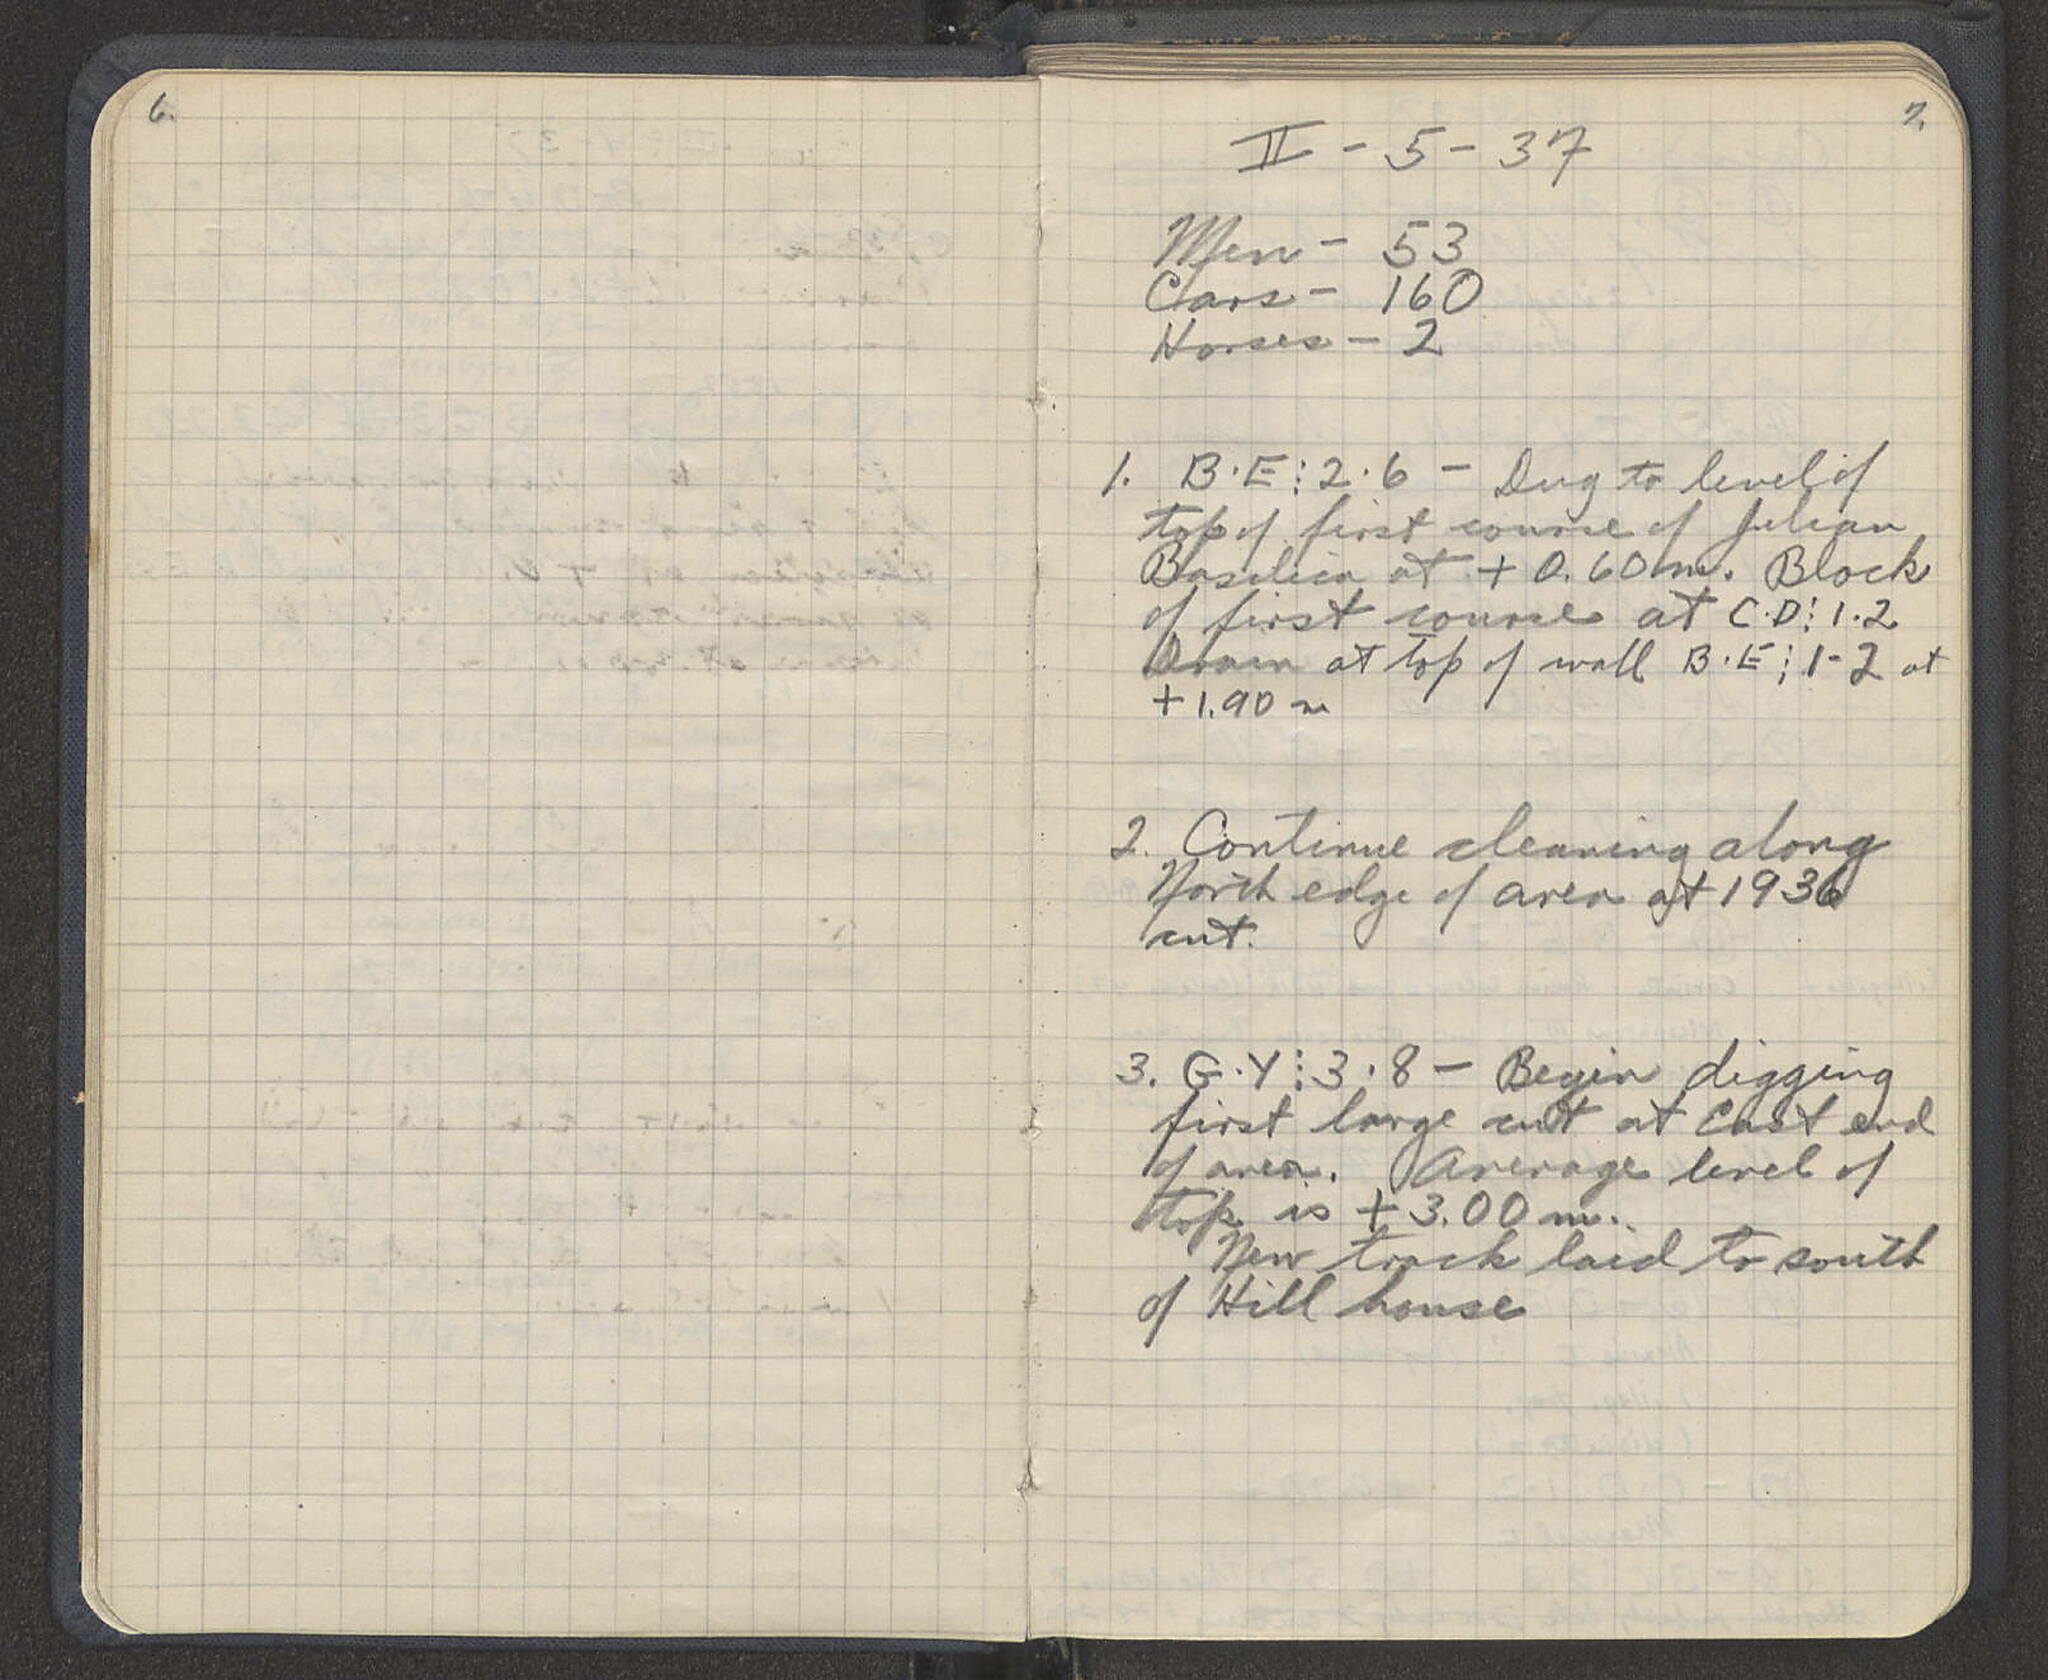 6.
7.
II - 5 - 37
Men - 53
Cars - 160
Horses - 2
1. B·E⋮2·6 - Dug to level of
top of first course of Julian
Basilica at + 0.60 m. Block
of first course at C·D⋮1·2
Drain at top of wall B·E⋮1-2 at
+ 1.90 m
2. Continue cleaning along
North edge of area at 1936
cut.
3. G·Y⋮3·8 - Begin digging
first large cut at East end
of area. Average level of
top is + 3.00 m.
New track laid to south
of Hill house